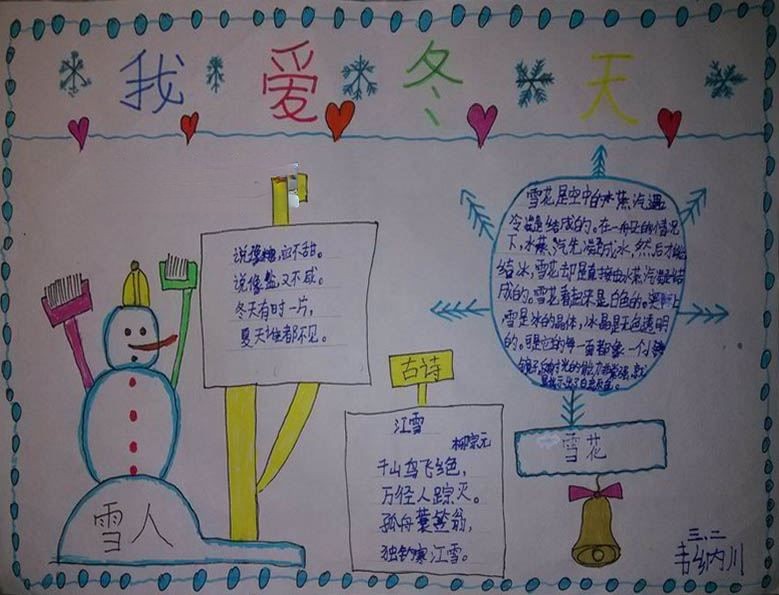 我爱冬天
说像糖,它不甜。
说像盐,又不咸。
冬天有时一片,
夏天谁都不见。
雪人
古诗
江雪
柳宗元
千山鸟飞绝,
万径人踪灭。
孤舟蓑笠翁,
独钓寒江雪。
雪花是空中的水蒸汽遇
冷凝结成的。在一般的情况
下,水蒸汽先凝成水,然后才能
结冰,雪花却是直接由水蒸汽凝结
成的。雪花看起来是白色的。实际上
雪是冰的晶体,冰晶是无色透明
的。可是它的每一面都象一个小
雪花
三.二